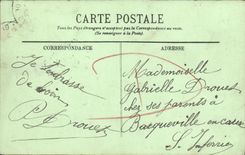 CARTE POSTALE
Tous les Pays étrangers n'acceptent pas la Correspondance au recto.
(Se renseigner à la Poste)
CORRESPONDANCE
ADRESSE
Je t'embrasse
de loin
P. Drouet
Mademoiselle
Gabrielle Drouet
chez ses parents à
Bacqueville en caux
S. Inférie